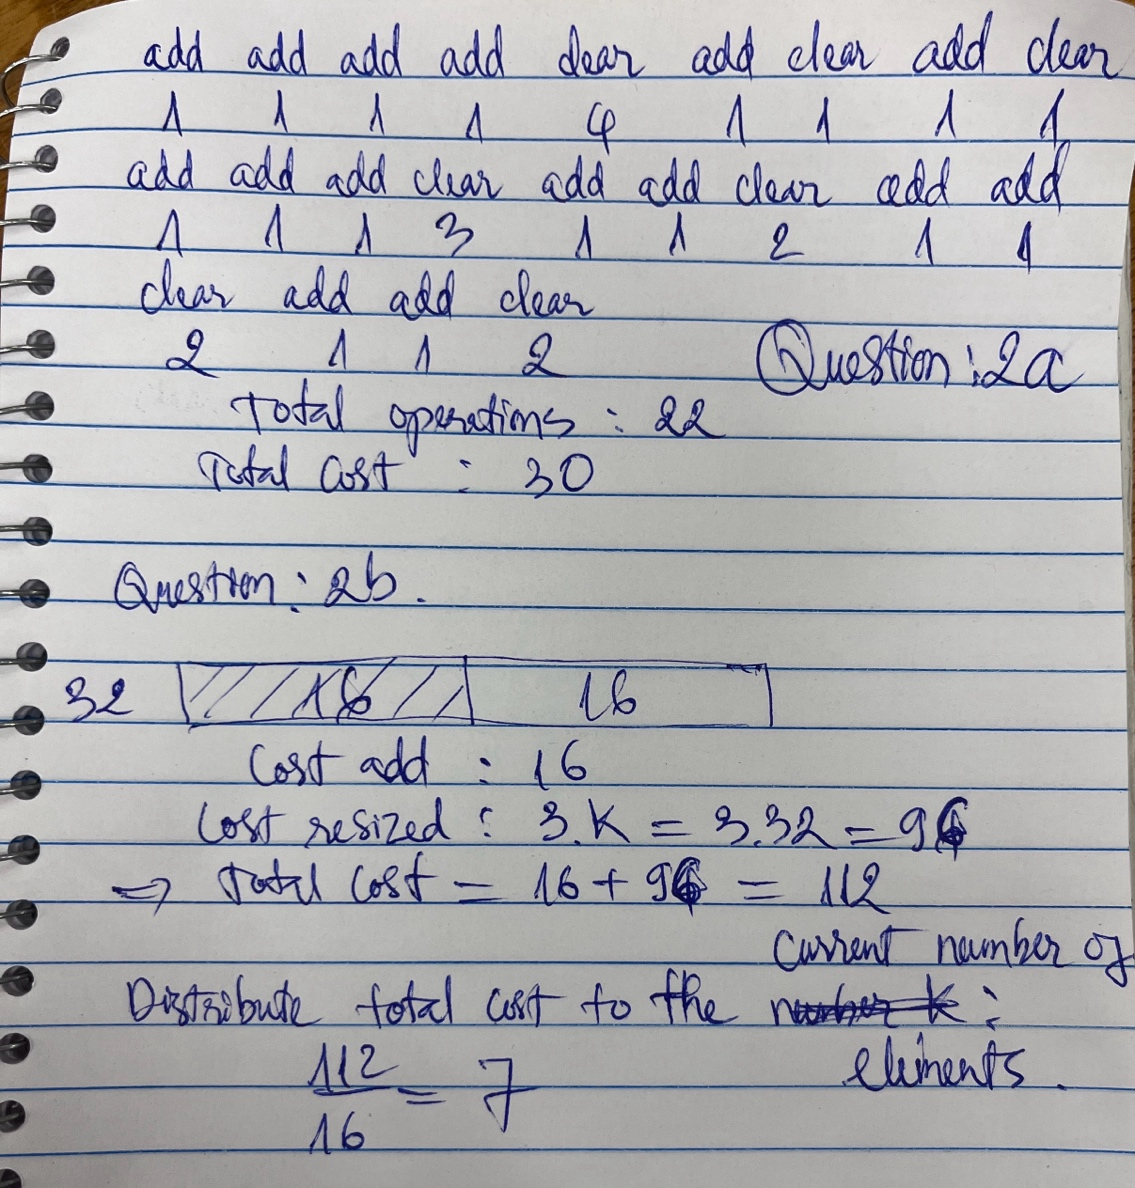 add add add add clear add clear add clear
1 1 1 1 4 1 1 1 1
add add add clear add add clear add add
1 1 1 3 1 1 2 1 1
clear add add clear
2 1 1 2
Question: 2a
Total operations : 22
Total cost : 30
Question: 2b.
32 16 16
Cost add : 16
Cost resized : 3.K = 3.32 = 96
=> Total cost = 16 + 96 = 112
Current number of
Distribute total cost to the number k :
elements.
112
= 7
16